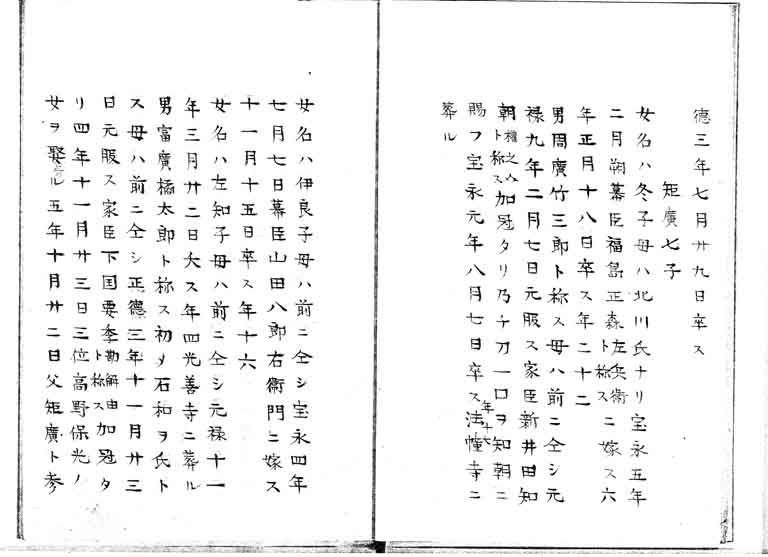 德三年七月廿九日卒ス
矩廣七子
女名ハ冬子母ハ北川氏ナリ宝永五年
二月朔幕臣福島正森左兵衛ト称スニ嫁ス六
年正月十八日卒ス年二十二
男周廣竹三郎ト称ス母ハ前ニ仝シ元
禄九年二月七日元服ス家臣新井田知
朝権之八ト称ス加冠タリ乃チ刀一口ヲ知朝ニ
賜フ宝永元年八月七日卒ス年十七法幢寺ニ
葬ル
女名ハ伊良子母ハ前ニ仝シ宝永四年
七月七日幕臣山田八郎右衛門ニ嫁ス
十一月十五日卒ス年十六
女名ハ左知子母ハ前ニ仝シ元禄十一
年三月廿二日夭ス年四光善寺ニ葬ル
男富廣橘太郎ト称ス初メ石和ヲ氏ト
ス母ハ前ニ仝シ正德三年十一月廿三
日元服ス家臣下国要季勘解由ト称ス加冠タ
リ四年十一月廿三日三位高野保光ノ
女ヲ娶ル五年十月廿二日父矩廣ト参